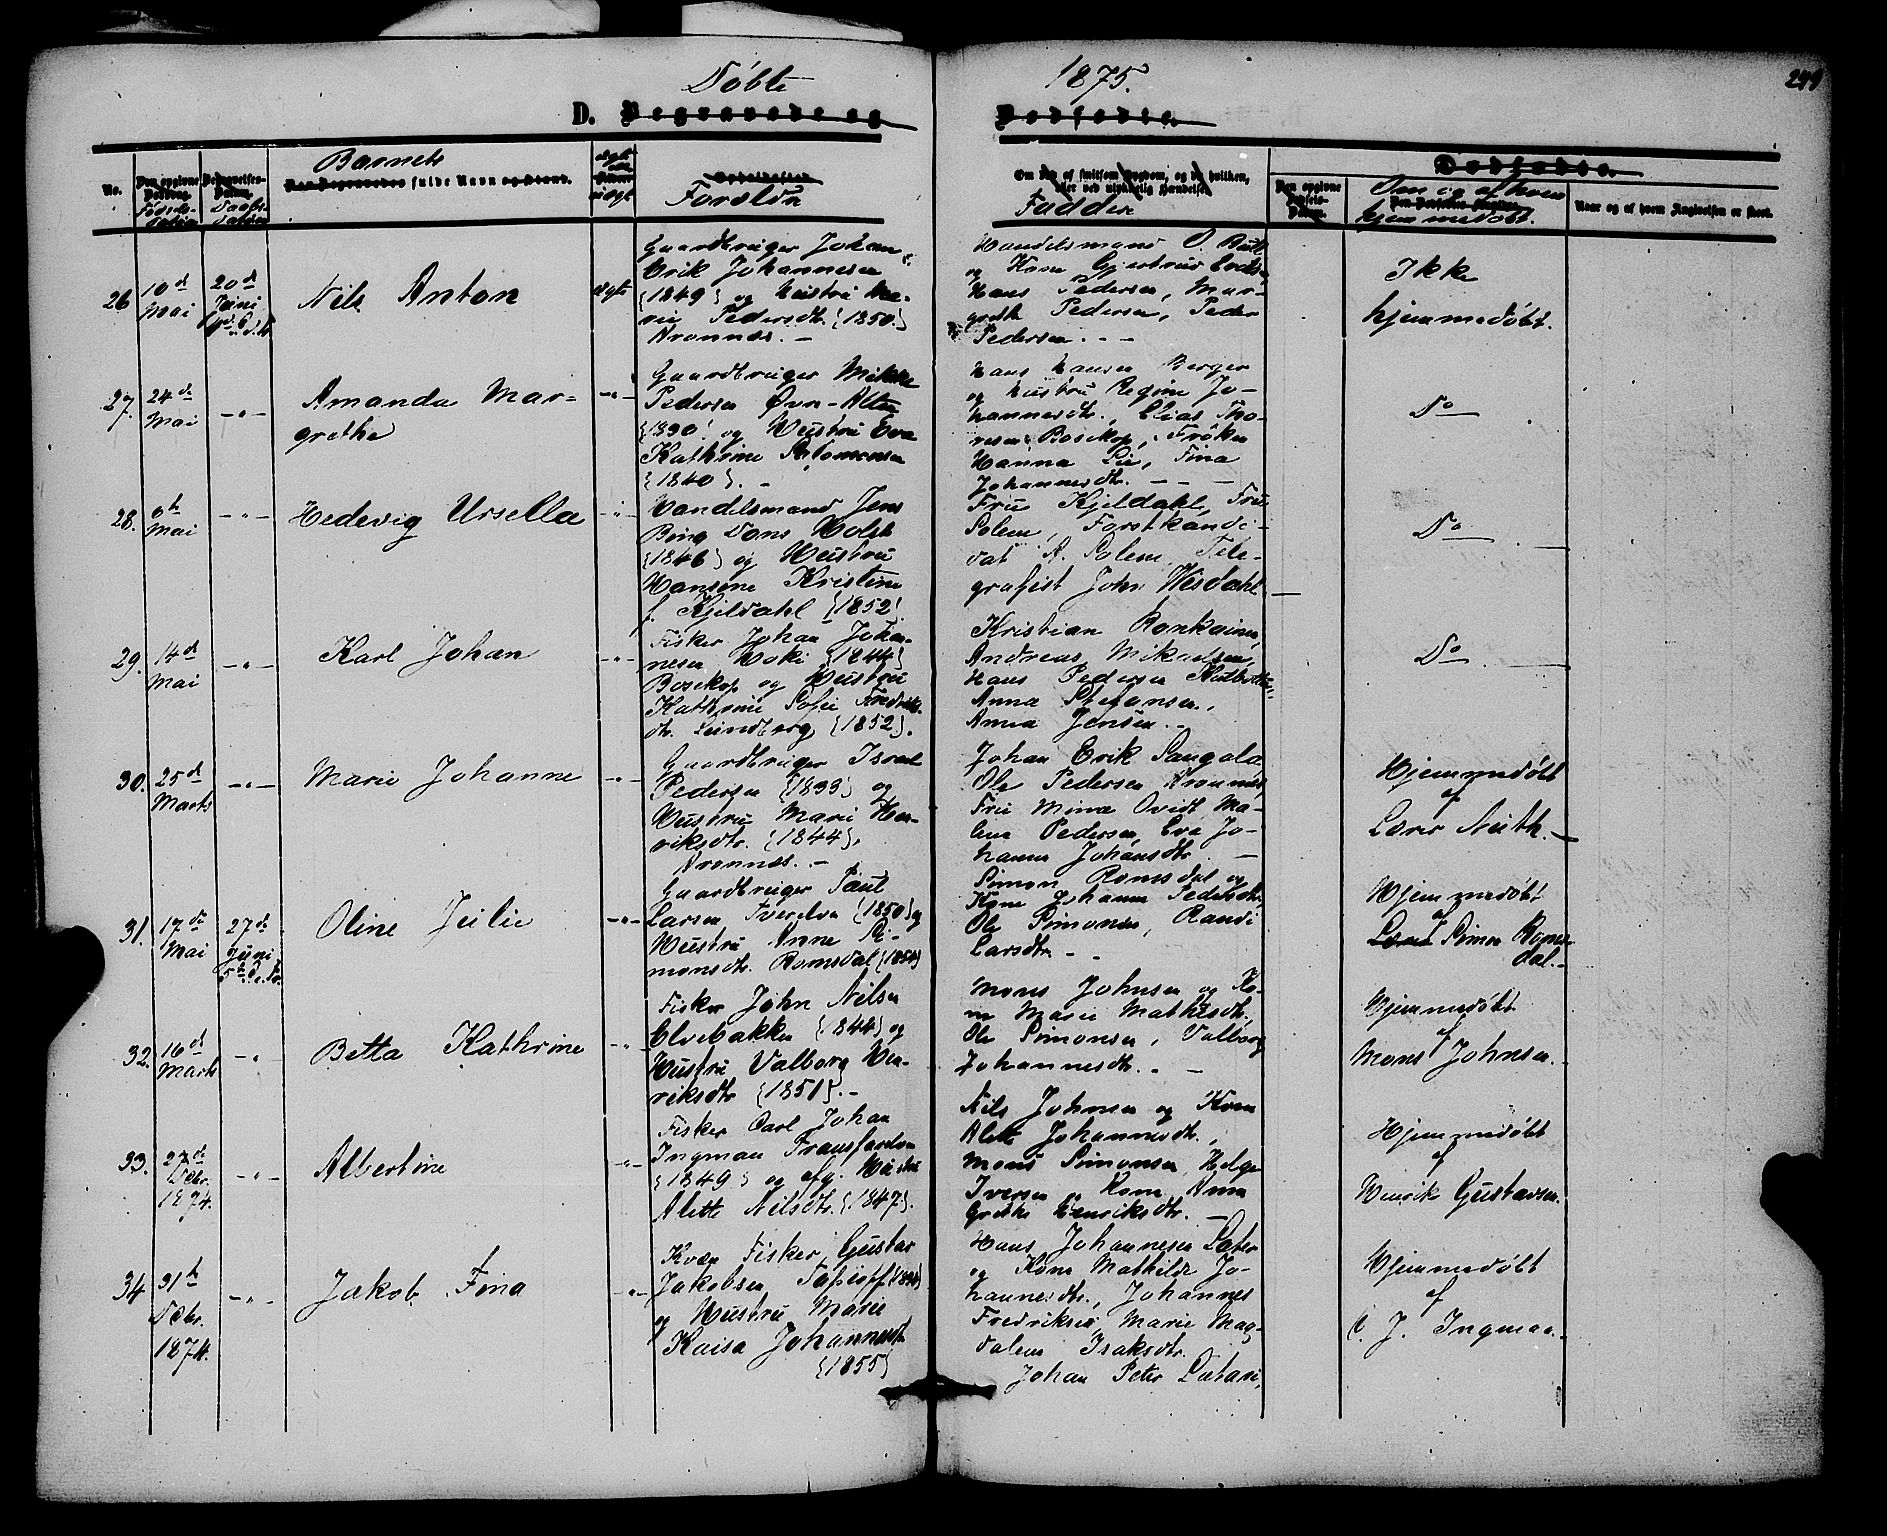 Döbte
1875.
D. Begravede og
Dødfødte.
No.
Den opgivne Dødsdag.
Fødsels-
Datum
Begravelses-Datum.
Daabs-
Datum
Barnets
Den Begravedes fulde Navn og Stand.
ægte
eller
uægte
Opholdssted
Forældre
Om Død af smitsom Sygdom, og da hvilken, eller ved ulykkelig Hændelse.
Faddere
Dødfødte.
Den opgivne Fødsels-Datum.
Om og af hvem
hjemmedøbt.
Naar og af hvem Angivelsen er skeet.
26
10d
Mai
20d
Juni
Nils Anton
ægte
Gaardbruger Johan
Erik Johannesen
{1849} og Hustru Ma-
rie Pedersdtr. {1850.}
Aronnæs. —
Handelsmand O. Buck
og Kone Gjertrud
Hans Pedersen, Mar-
grethe Pedersen, Peder
Pedersen. - -
Ikke
hjemmedøbt.
27.
24d
Mai
—"—
Amanda Mar-
grethe
—"—
Gaardbruger Mikkel
Pedersen Øvre-Alten
{1830} og Hustru Eva
Kathrine Salomonsen
{1840}. -
Hans Hansen Berger
og Hustru Regine Jo-
hannesdtr., Elias Tho-
resen Bosekop, Frøken
Hanna Lie, Fina
Johannesdtr. - - -
Do
28.
6th
Mai
—"—
Hedevig Ursella
—"—
Handelsmand Jens
Bing Dons Holst
{1846} og Hustru
Hansine Kristine
f. Kjeldahl {1852}
Fru Kjeldahl, Fru
Solem, Forstkandi-
dat A. Solem, Tele-
grafist John Wisdahl.
Do
29.
14d
Mai
—"—
Karl Johan
—"—
Fisker Johan Johan-
nesen Hoki {1844}
Bosekop og Hustru
Kathrine Sofie Fredriks-
dtr. Lundborg {1852}.
Kristian Ronkainen,
Andreas Mikaelsen,
Hans Pedersen
Anna Stefansen,
Anna Jensen. -
Do
30.
25d
Marts
—"—
Marie Johanne
—"—
Gaardbruger Israel
Pedersen {1833} og
Hustru Marie Hen-
riksdtr. {1844},
Aronnæs. —
Johan Erik Sangala
Ole Pedersen Aronnæs,
Fru Mina Qvidt, Ma-
lene Pedersen, Eva Jo-
hanna Johansdtr.
Hjemmedøbt
af
Lærer Niith. —
31.
17de
Mai
27d
Juni
Oline Julie
—"—
Gaardbruger Paul
Larsen Tverelven {1850} og
Hustru Anne Si-
monsdtr. Romsdal {1854}
Simon Romsdal og
Kone Johanna Pedersdtr,
Ole Simonsen, Randi
Larsdtr. -
Hjemmedøbt
af
Simon Roms-
dal. -
32.
16d
Marts
—"—
Betta Kathrine
—"—
Fisker John Nilsen
Elvebakken {1844} og
Hustru Valborg Hen-
riksdtr {1851}. -
Mons Johnsen og Ko-
ne Marie Mathisdtr,
Ole Simonsen, Valborg
Johannesdtr. -
Hjemmedøbt
af
Mons Johnsen. -
33.
27de
Decbr.
1874.
—"—
Albertine
—"—
Fisker Carl Johan
Ingman Transfarelven
{1849} og afg. Hustru
Alette Nilsdtr. {1847}.
Nils Johnsen og Kone
Alette Johannesdtr.,
Mons Simonsen, Helge
Iversen og Kone Anna
Grethe Henriksdtr. —
Hjemmedøbt
af
Henrik Gustavsen.
34
31te
Decbr.
1874.
—"—
Jakob Fina
—"—
Kvæn Fisker, Gustav
Jakobsen
og Hustru Marie
Kaisa Johannesdtr
{1855}
Hans Johannesen Sæter
og Kone Mathilde Jo-
hannesdtr., Johannes
Fredriksen, Marie Mag-
dalena Isaksdtr.
Johan Peter
Hjemmedøbt
af
C. J. Ingman. -